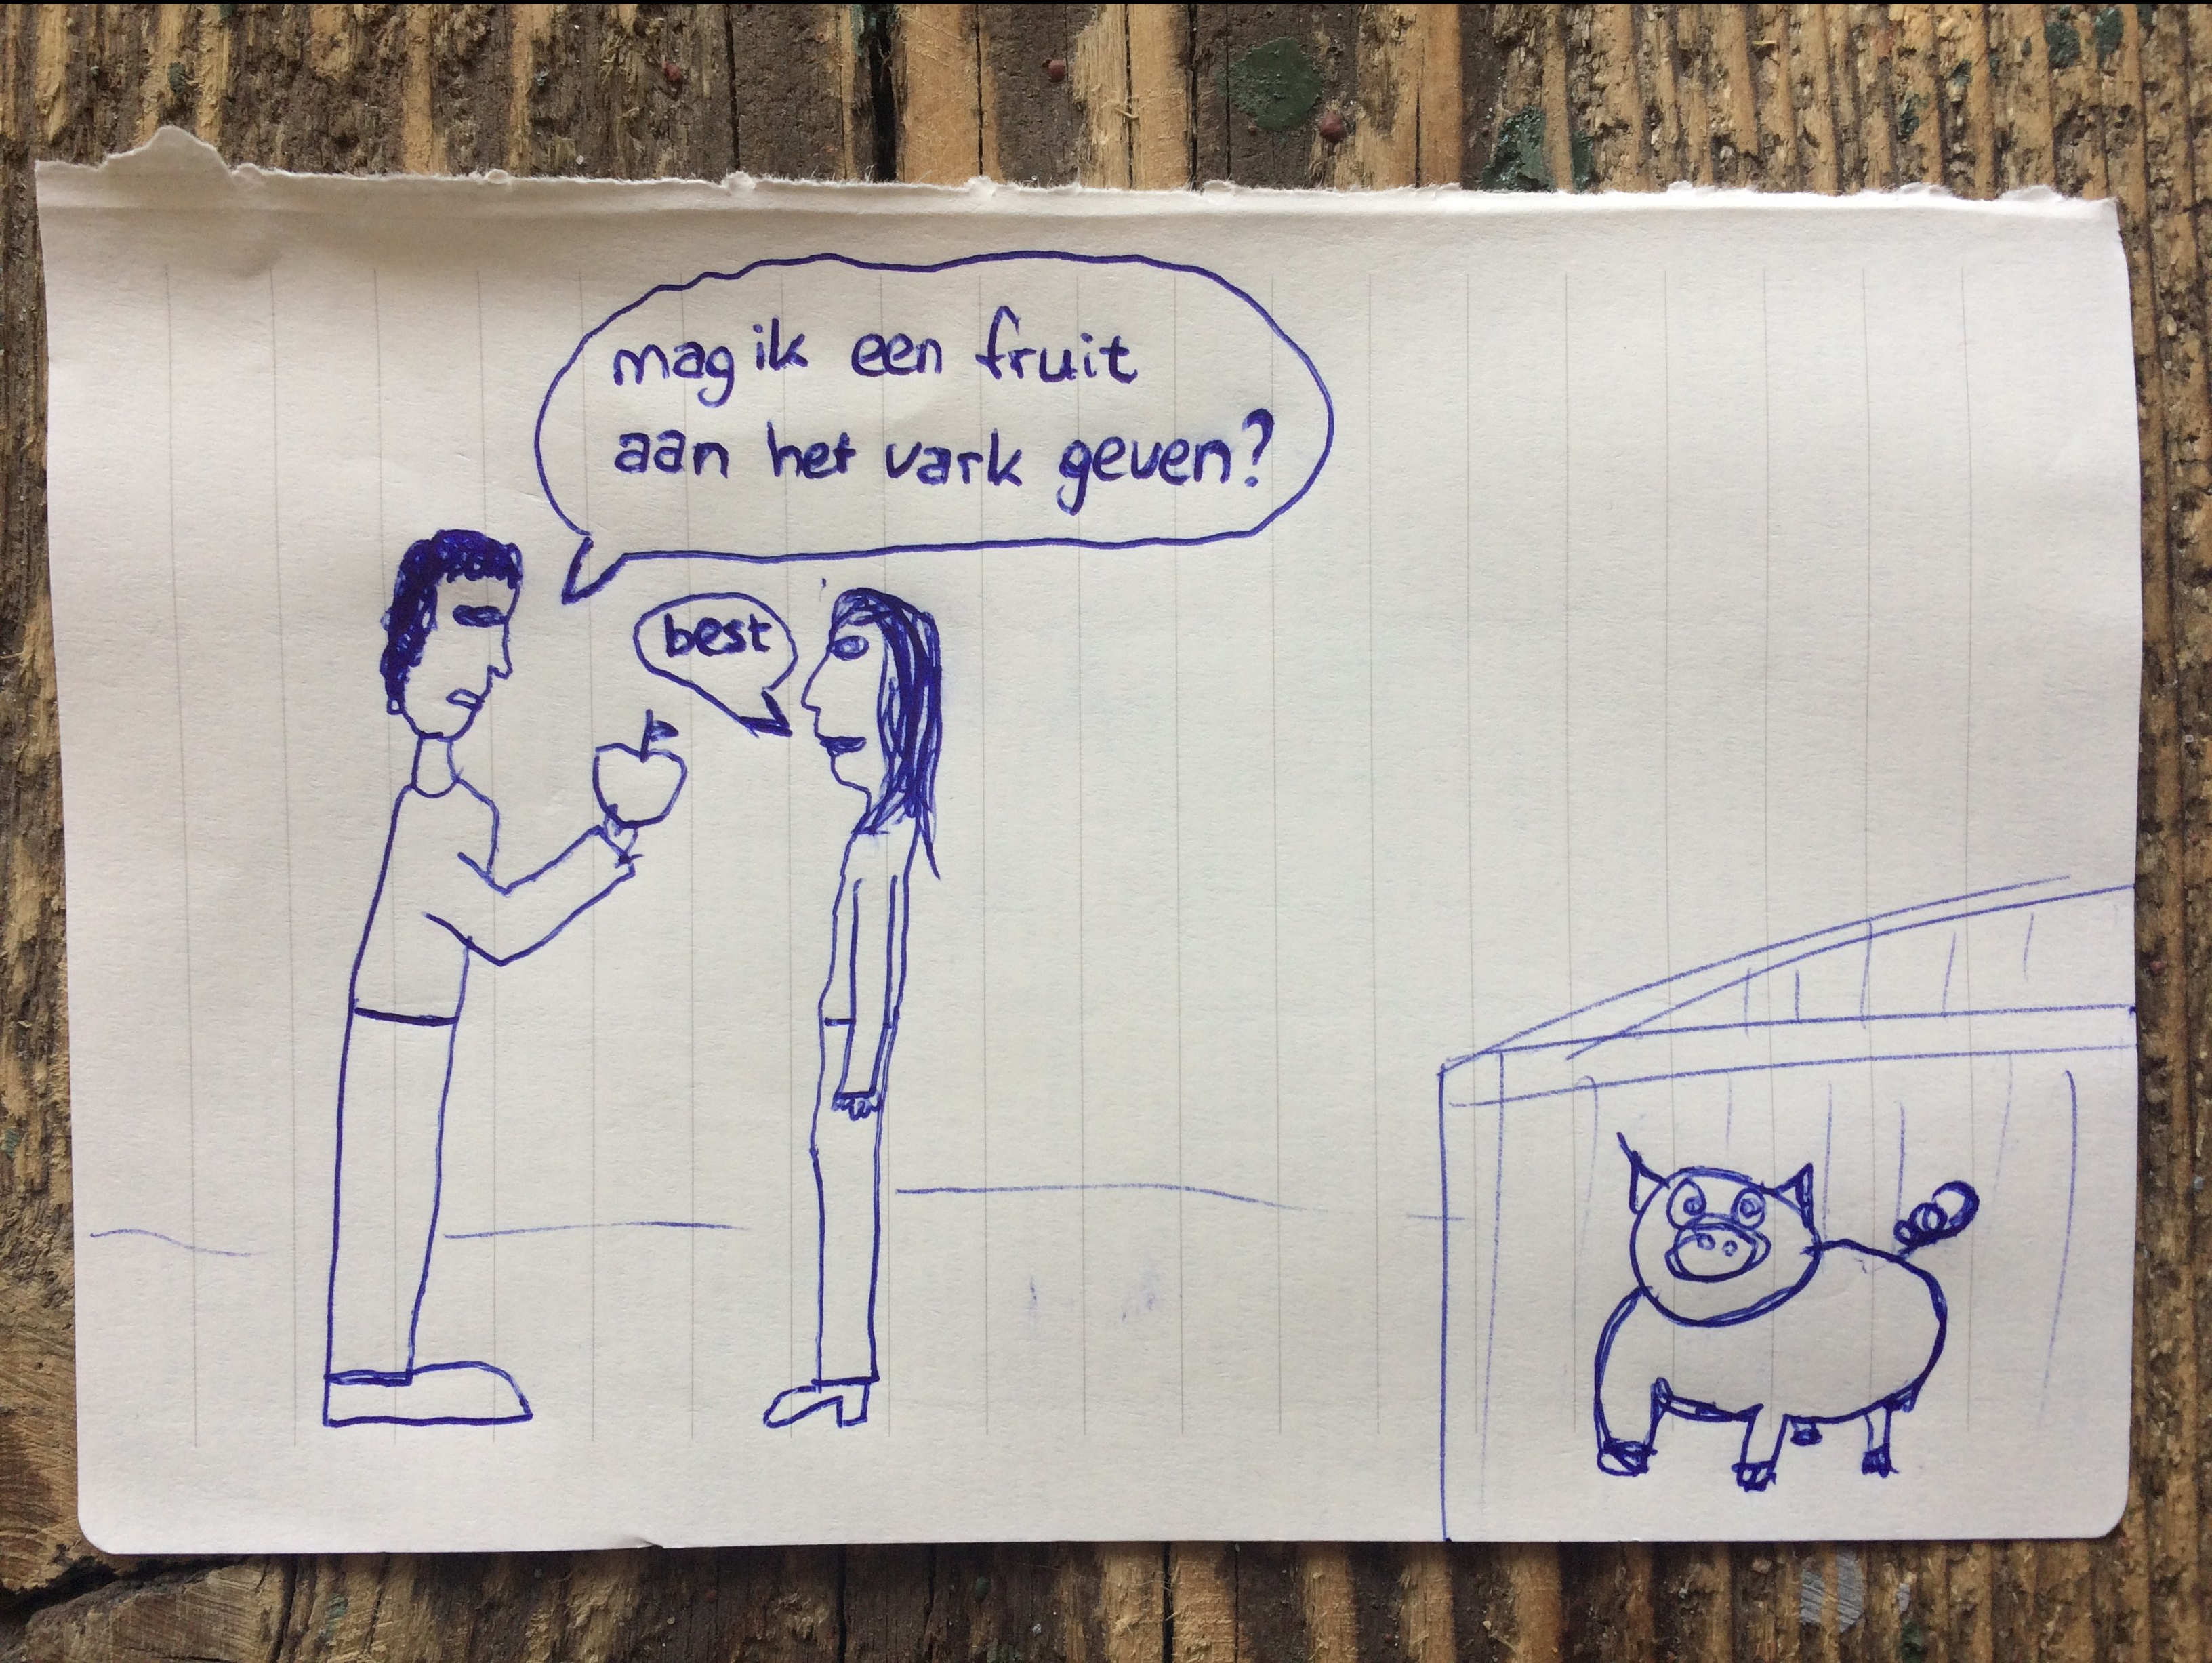 mag ik een fruit
aan het vark geven?
best